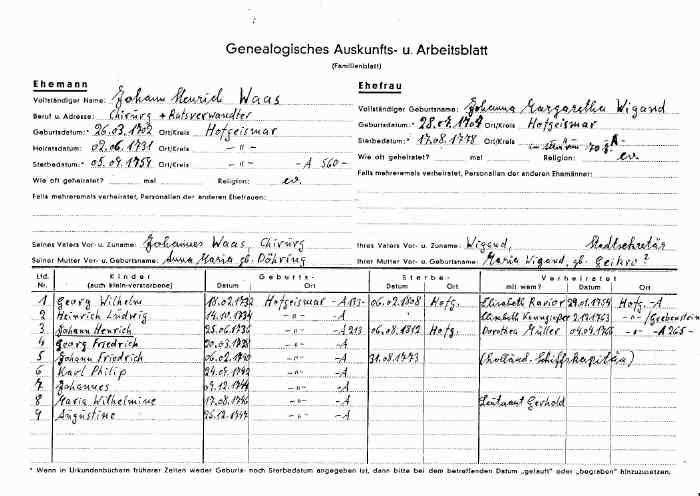 Genealogisches Auskunfts- u. Arbeitsblatt
(Familienblatt)
Ehemann
Vollständiger Name: Johann Henrich Waas
Beruf u. Adresse: Chirurg + Ratsverwandter
Geburtsdatum:* 26.03.1702 Ort/Kreis Hofgeismar
Heiratsdatum: 02.06.1731 Ort/Kreis -"-
Sterbedatum:* 05.09.1754 Ort/Kreis -"- -A 560-
Wie oft geheiratet? mal Religion: ev.
Falls mehreremals verheiratet, Personalien der anderen Ehefrauen:
Seines Vaters Vor- u. Zuname: Johannes Waas, Chirurg
Seiner Mutter Vor- u. Geburtsname: Anna Maria gb. Döhring
Ehefrau
Vollständiger Geburtsname: Johanna Margaretha Wigand
Geburtsdatum:* Ort/Kreis Hofgeismar
Sterbedatum:* 17.08.1778 Ort/Kreis -"- -A-
Wie oft geheiratet? mal Religion: ev.
Falls mehreremals verheiratet, Personalien der anderen Ehemänner:
Ihres Vaters Vor- u. Zuname: Wigand, Stadtsekretär
Ihrer Mutter Vor- u. Geburtsname: Maria Wigand, gb.
Lfd. Nr. Kinder (auch klein-verstorbene) Geburts- Datum Ort Sterbe- Datum Ort Verheiratet mit wem? Datum Ort
1 Georg Wilhelm 18.02.1732 Hofgeismar -A 173- 06.02.1808 Hofg. Elisabeth 29.01.1754 Hofg. -A
2 Heinrich Ludwig 14.10.1734 -"- -A Elisabeth 2.12.1763 -"- /Grebenstein
3 Johann Henrich 25.06.1736 -"- -A 213 06.08.1812 Hofg. Dorothea Müller 04.09.1766 -"- -A 265-
4 Georg Friedrich 20.03.1738 -"- -A
5 Johann Friedrich 06.02.1740 -"- -A 31.08.1773 (Holländ. Schiffskapitän)
6 Karl Philip 24.09.1742 -"- -A
7 Johannes 09.12.1744 -"- -A
8 Maria Wilhelmine 17.08.1746 -"- -A Leutnant Gerhold
9 Augustine 26.12.1747 -"- -A
* Wenn in Urkundenbüchern früherer Zeiten weder Geburts- noch Sterbedatum angegeben ist, dann bitte bei dem betreffenden Datum „getauft" oder „begraben" hinzuzusetzen.